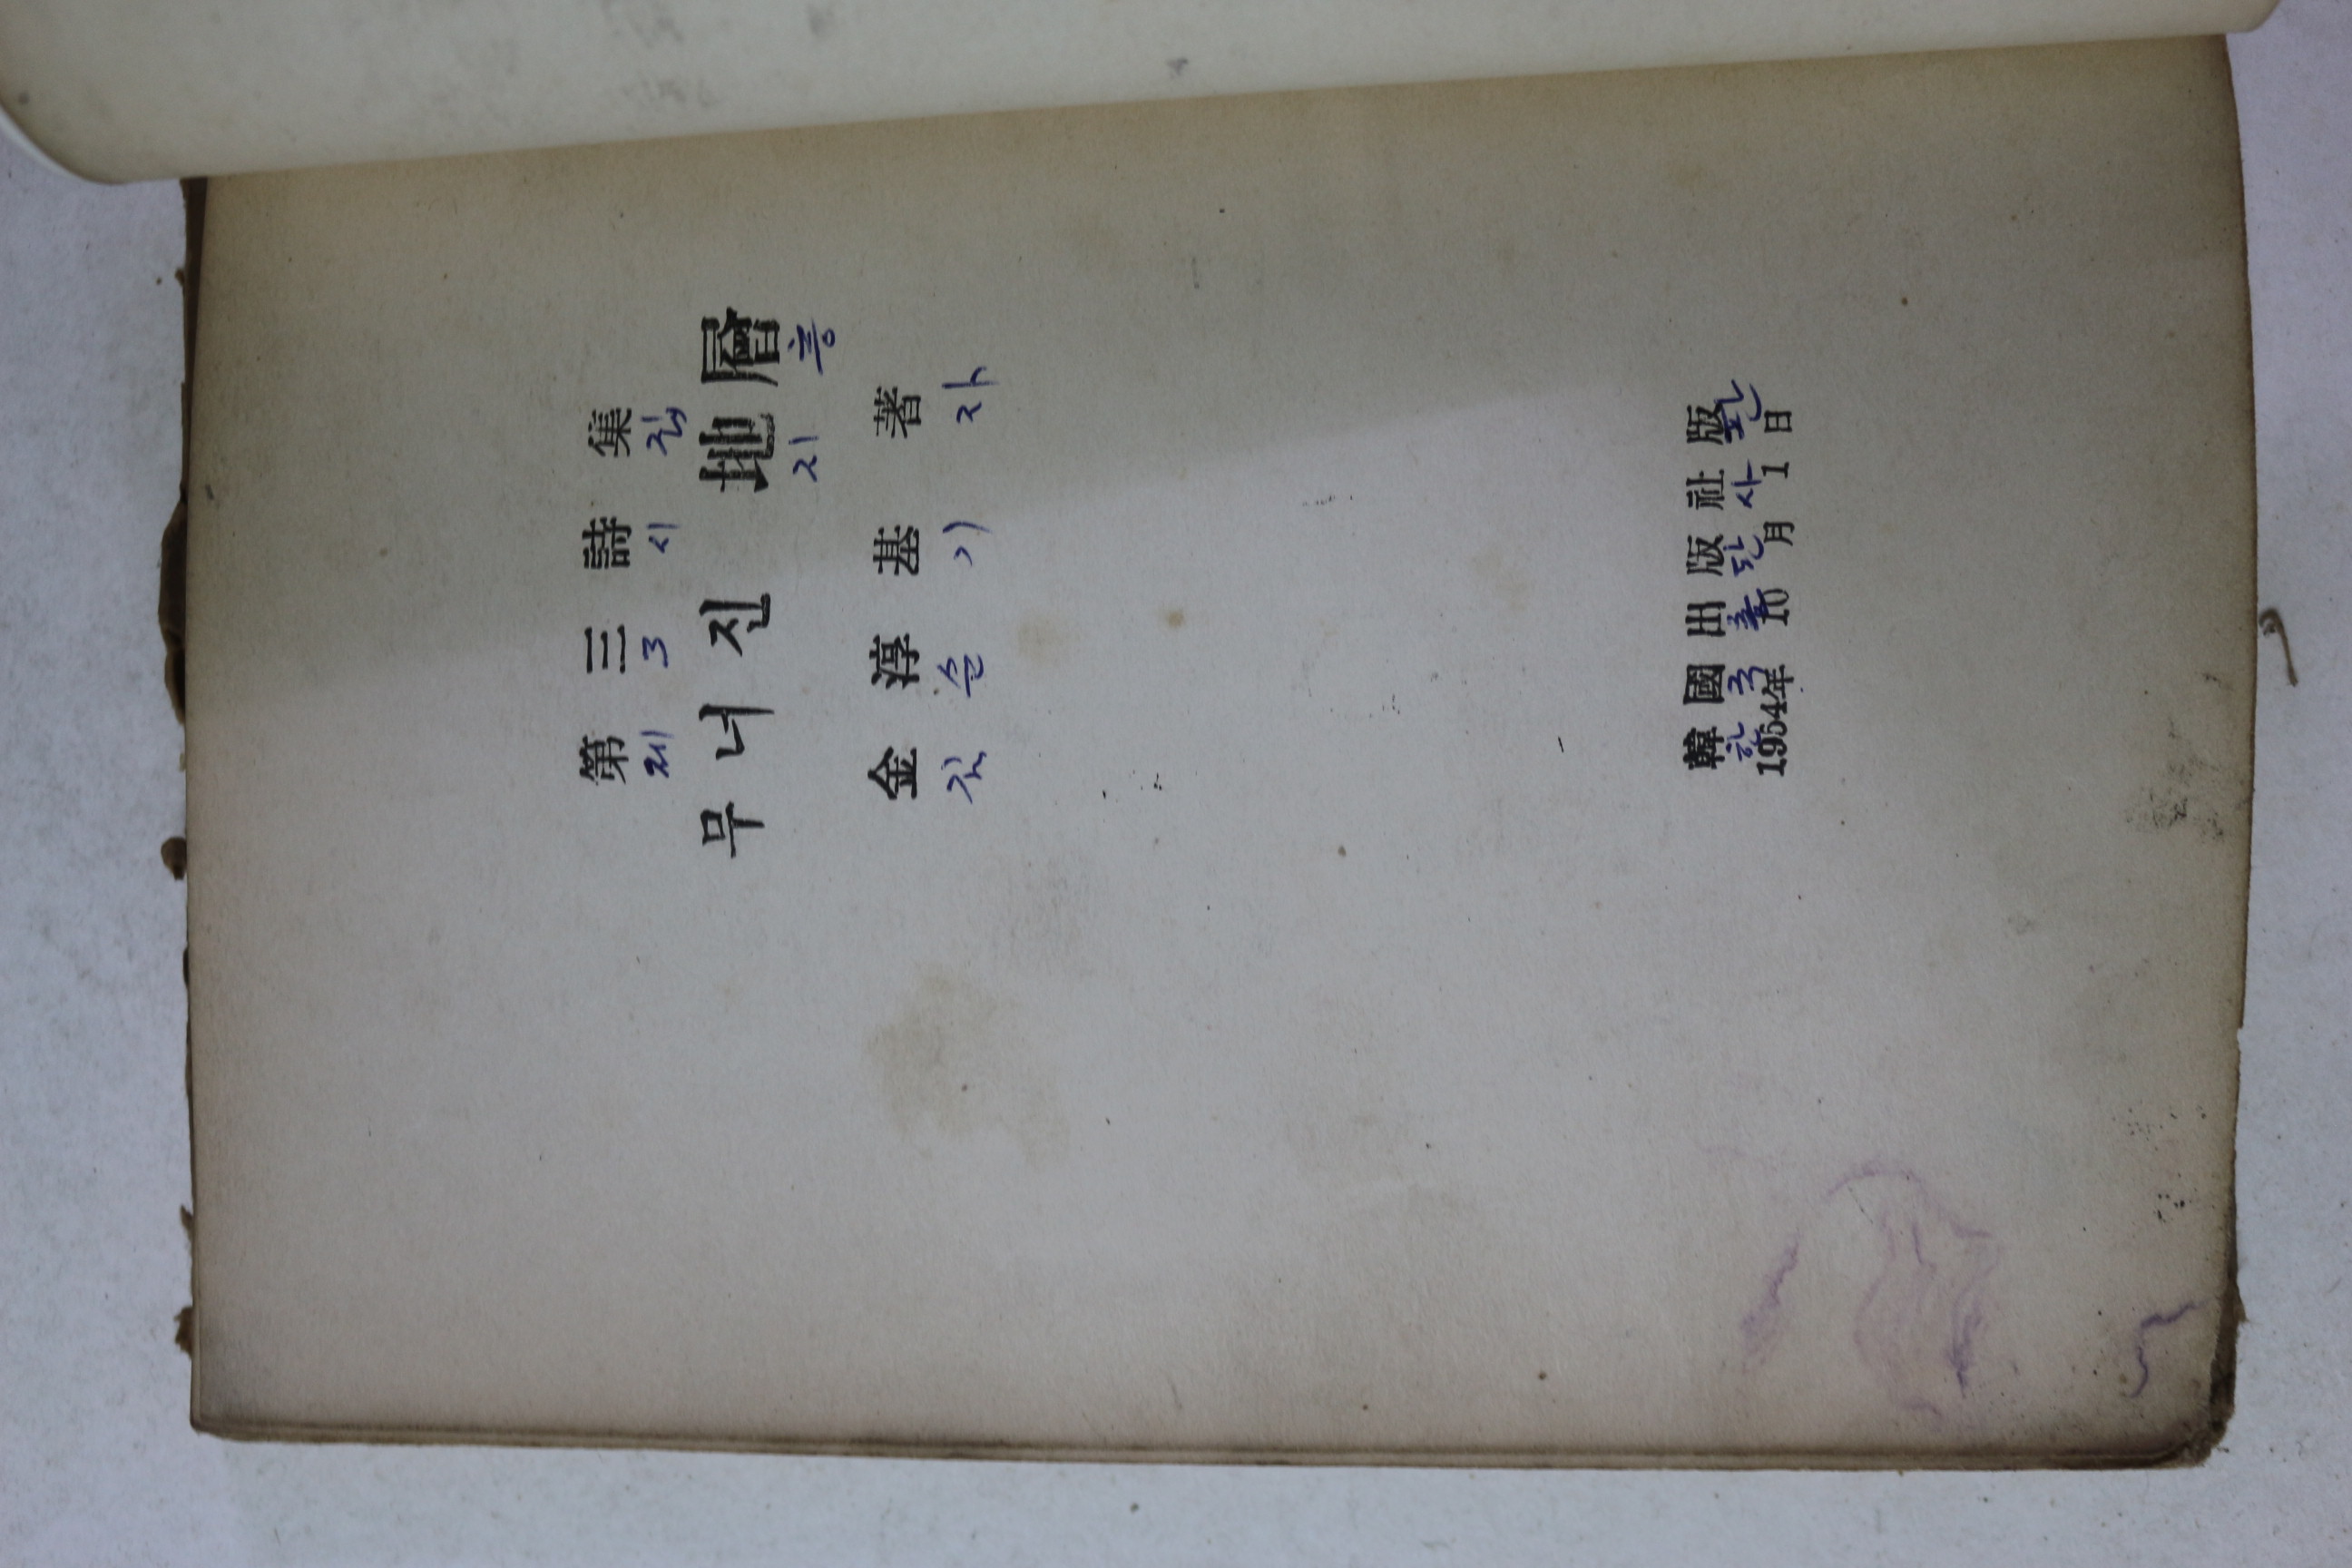 第三詩集
제 3 시 집
무너진 地層
지 층
金淳基 著
김 순 기 자
韓國出版社版
한 국 출 판 사 판
1954年 10月 1日